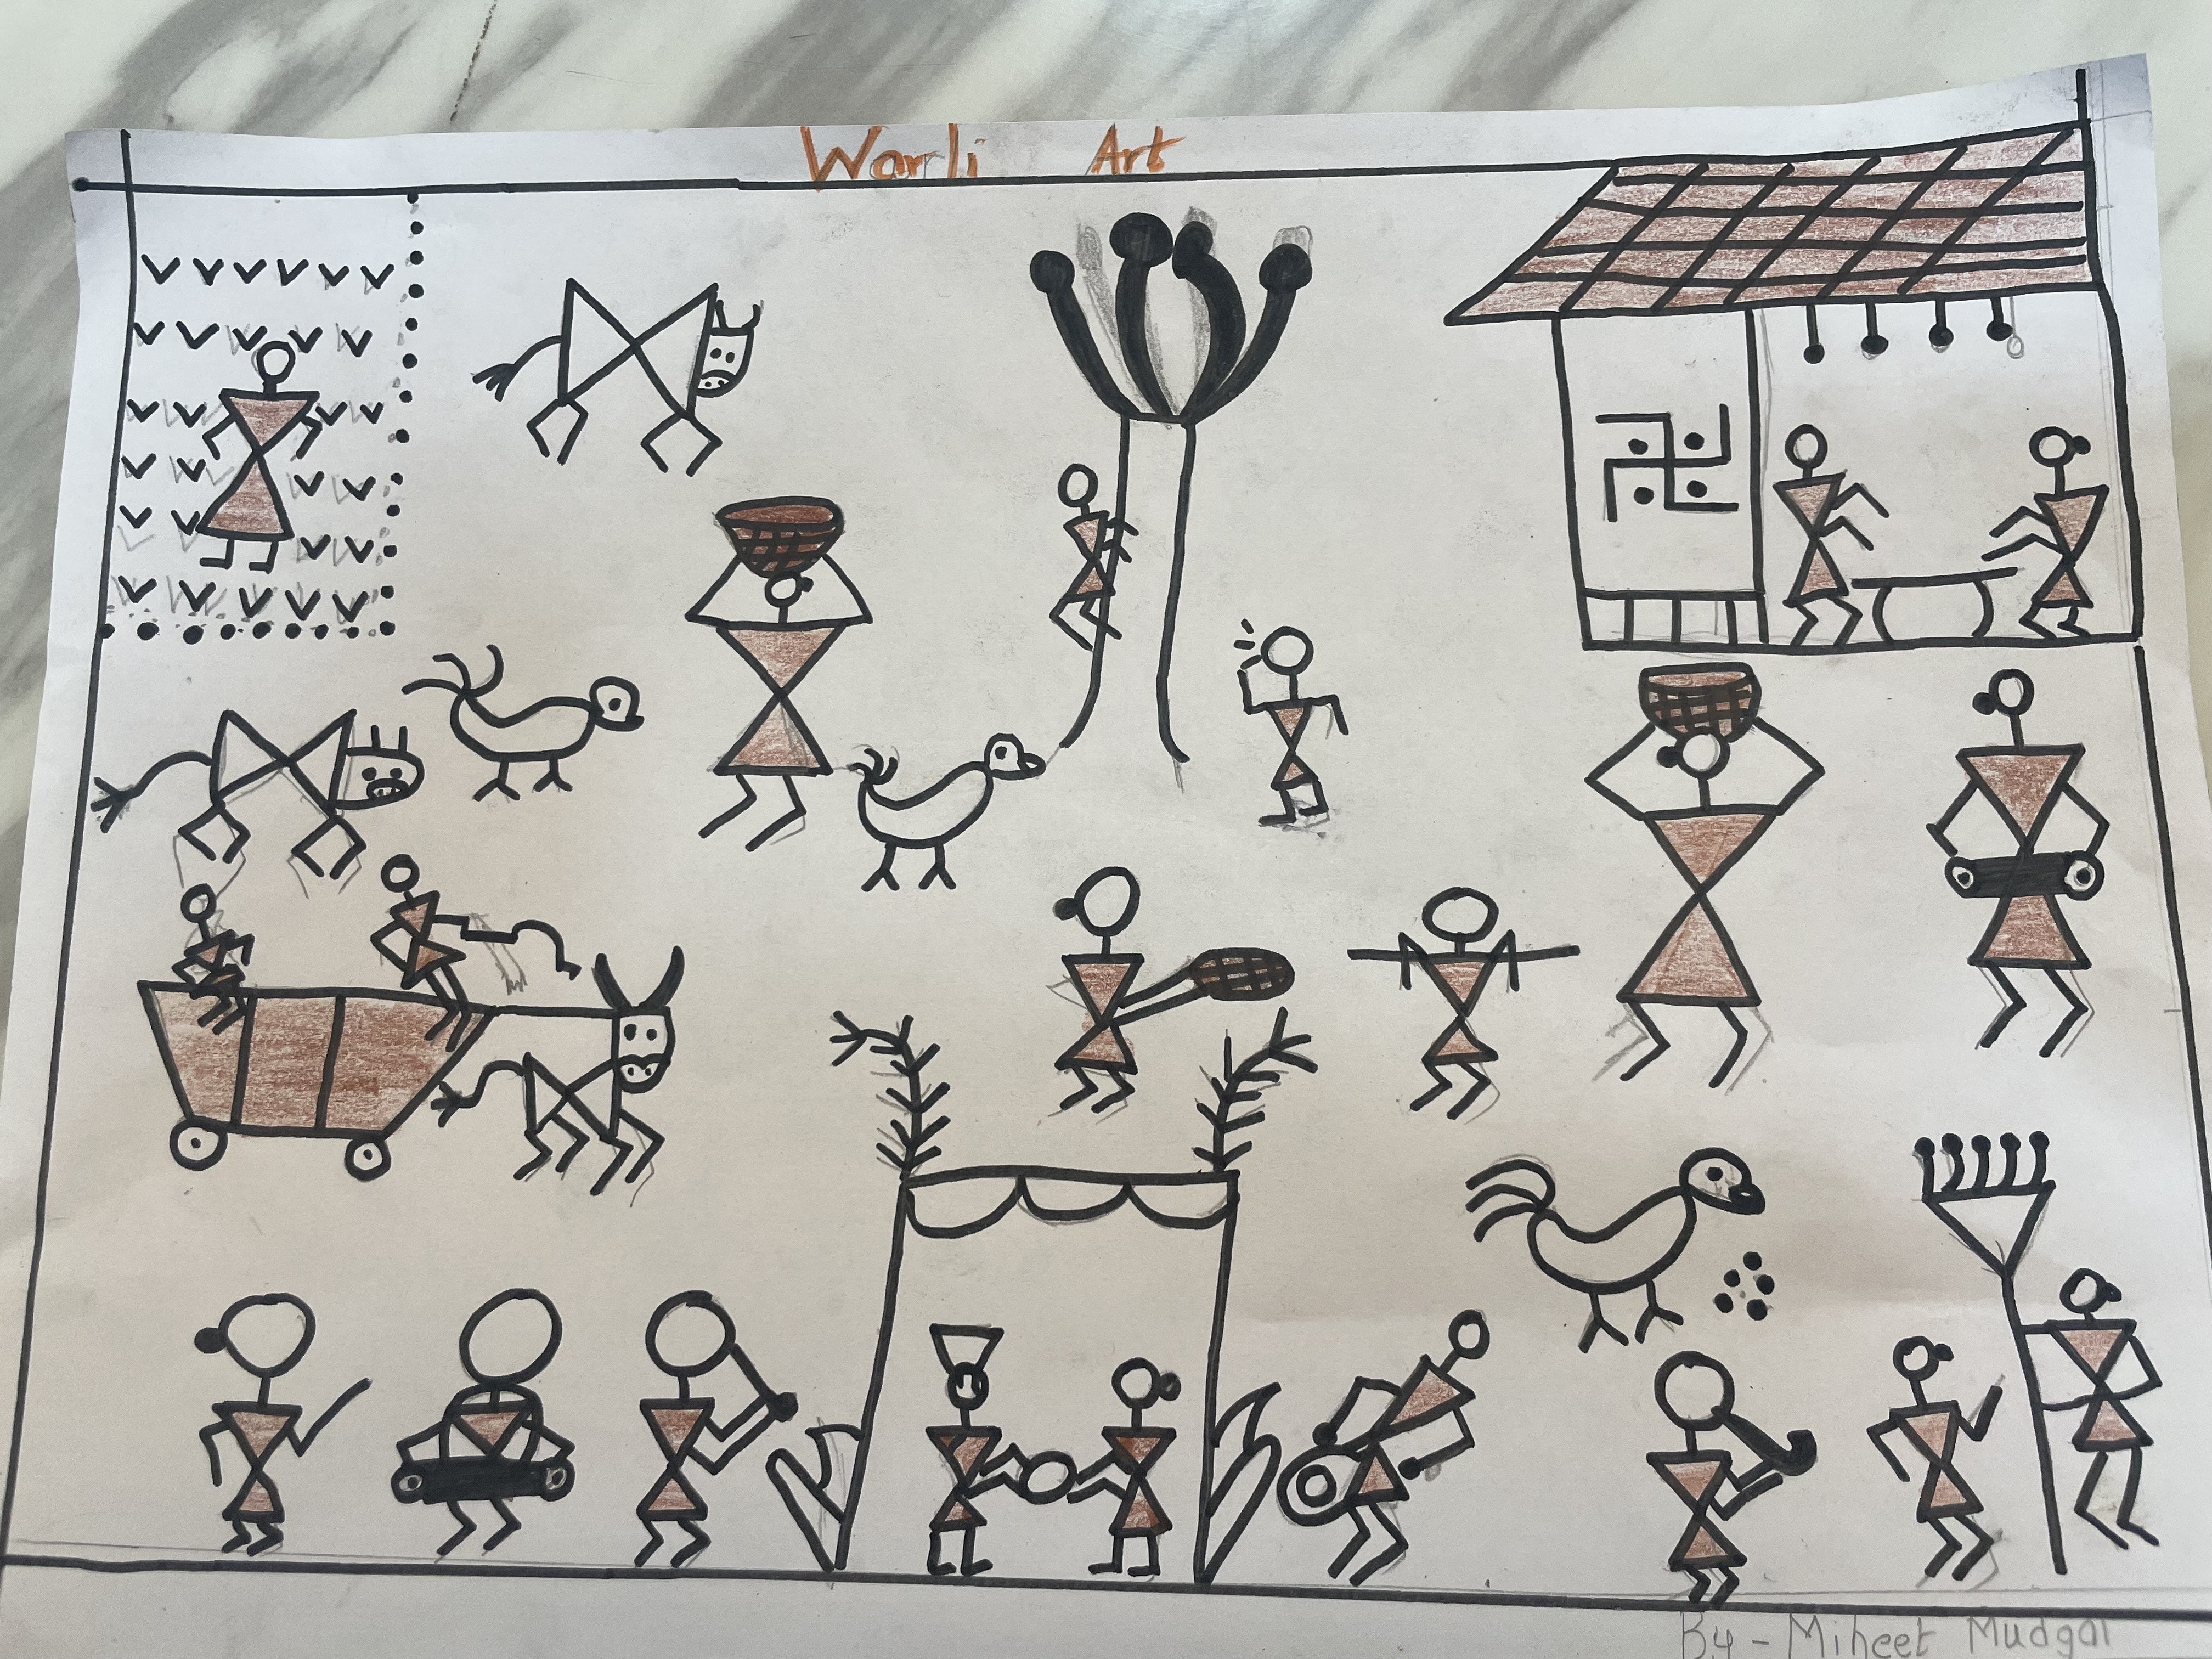 Warli Art
By - Miheet Mudgal